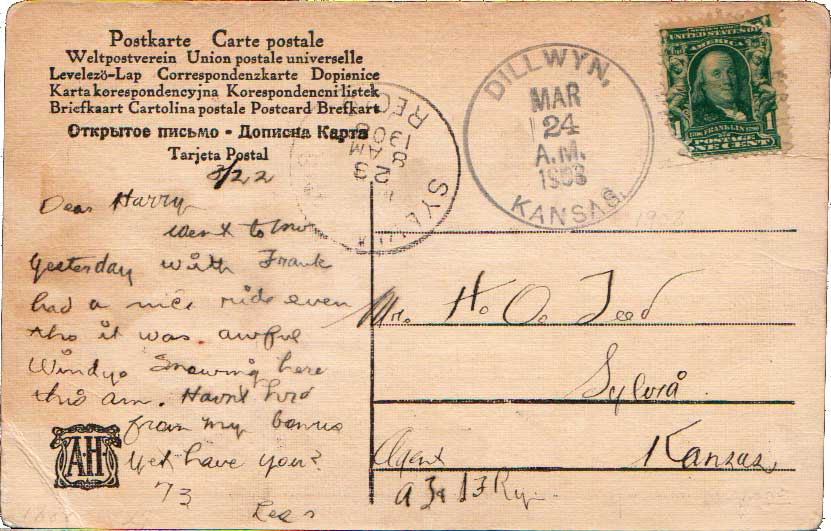 Postkarte Carte postale
Weltpostverein Union postale universelle
Levelező-Lap Correspondenzkarte Dopisnice
Karta korespondencyjna Korespondenčni listek
Briefkaart Cartolina postale Postcard Brefkort
Открытое письмо - Дописна Карта
Tarjeta Postal
DILLWYN,
MAR
24
A.M.
1908
KANSAS.
REC'D
SYLVIA
UNITED STATES OF
AMERICA
1 1
POSTAGE
ONE CENT
3/22
Dear Harry
Went to
Yesterday with Frank
had a nice ride even
tho it was awful
Windy. Snowing here
this am. Havn't hurd
from my bonus
yet have you?
73
Mr. H. O. Teed
Sylvia
Agent
Kansas,
A.H.